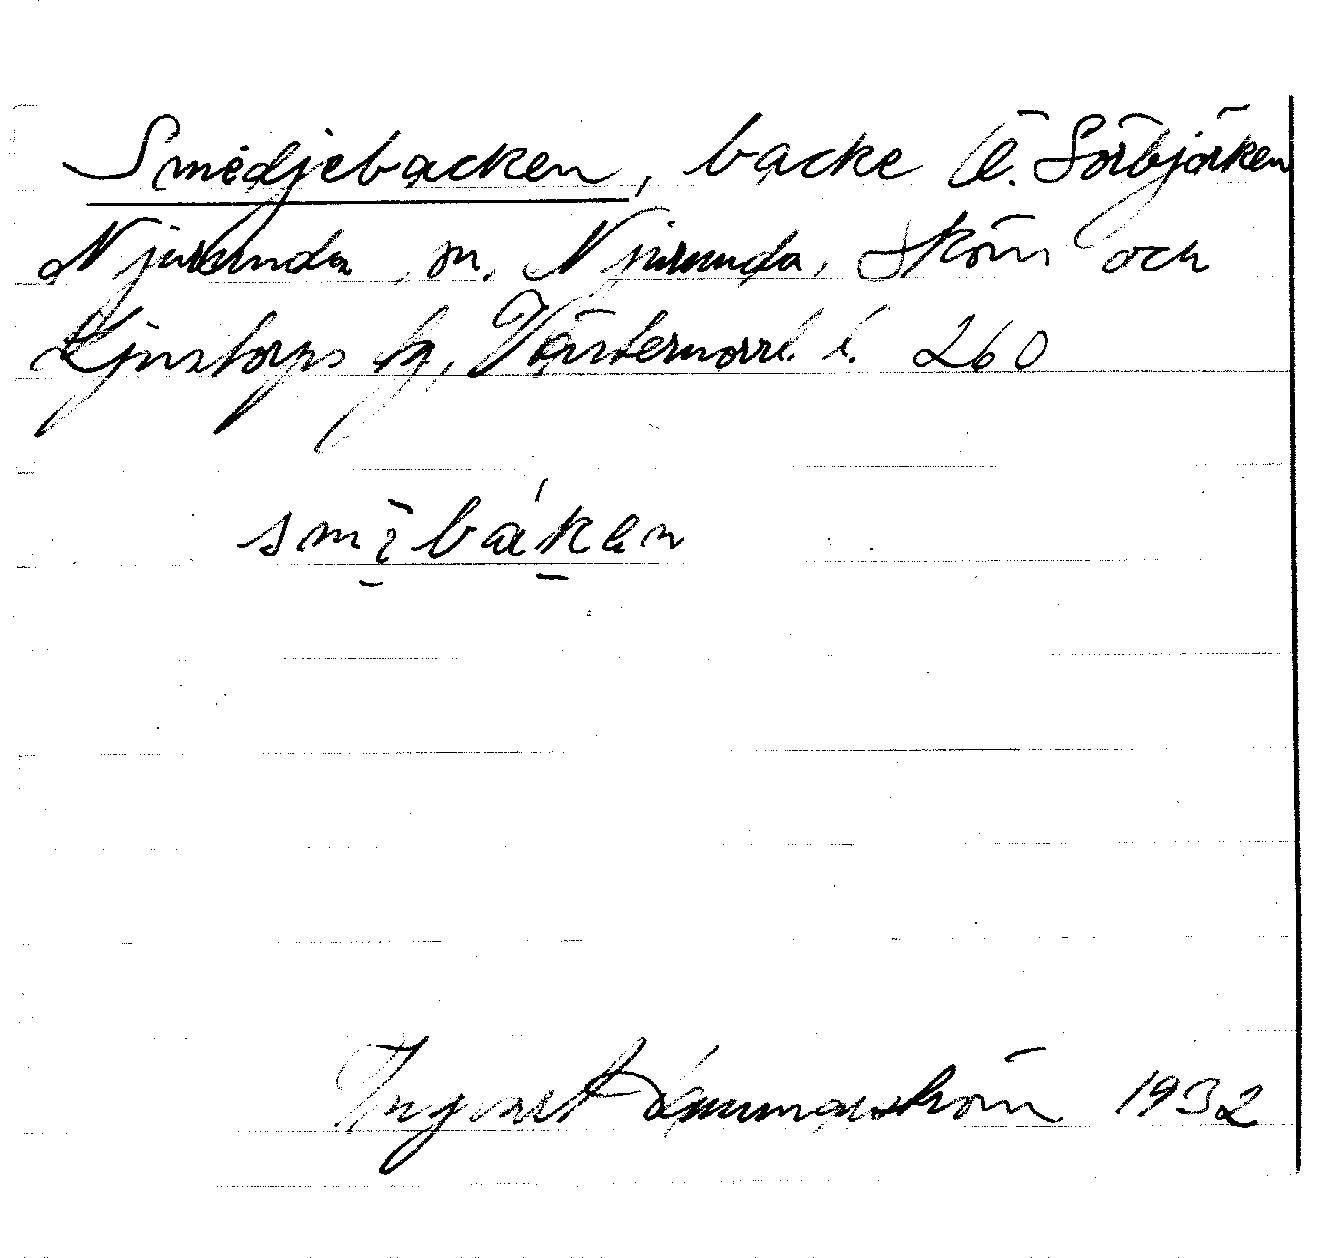 Smedjebacken, backe å. Sörbjörken
Njurunda sn. Njurunda, Sköns och
Ljustorps tg, Västernorrl. l. 260
smībákan
Ingvart 1932